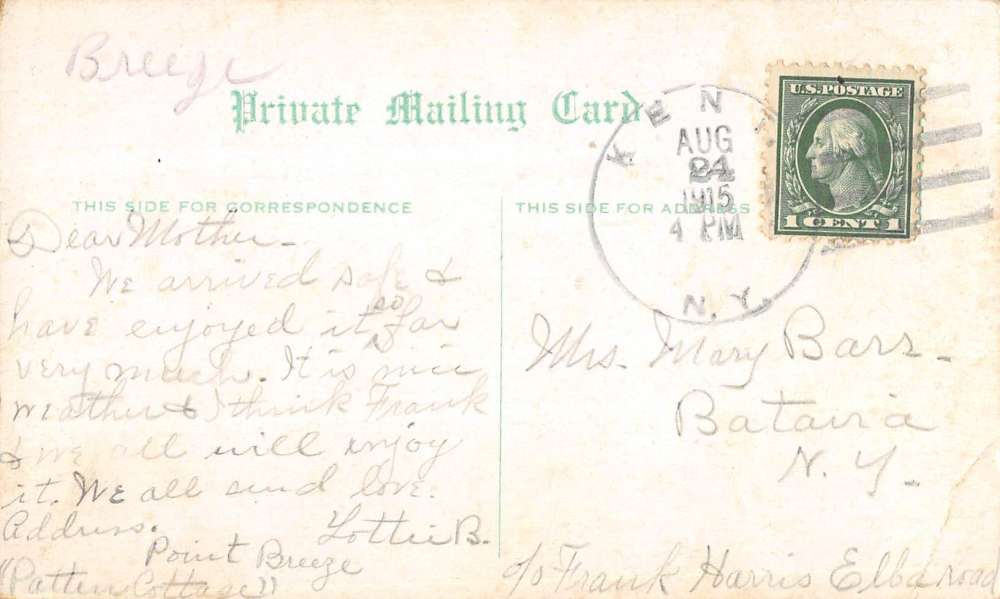 Breeze
Private Mailing Card
THIS SIDE FOR CORRESPONDENCE
Dear Mother—
We arrived safe &
have enjoyed it so far
very much. It is nice
weather & I think Frank
& we all will enjoy
it. We all send love.
Address. Lottie B.
Point Breeze
"Patten Cottage"
THIS SIDE FOR ADDRESS
KEN
AUG
24
1915
4 PM
N.Y.
U.S. POSTAGE
1 CENT 1
Mrs. Mary Barr—
Batavia
N. Y.—
c/o Frank Harris Elba road